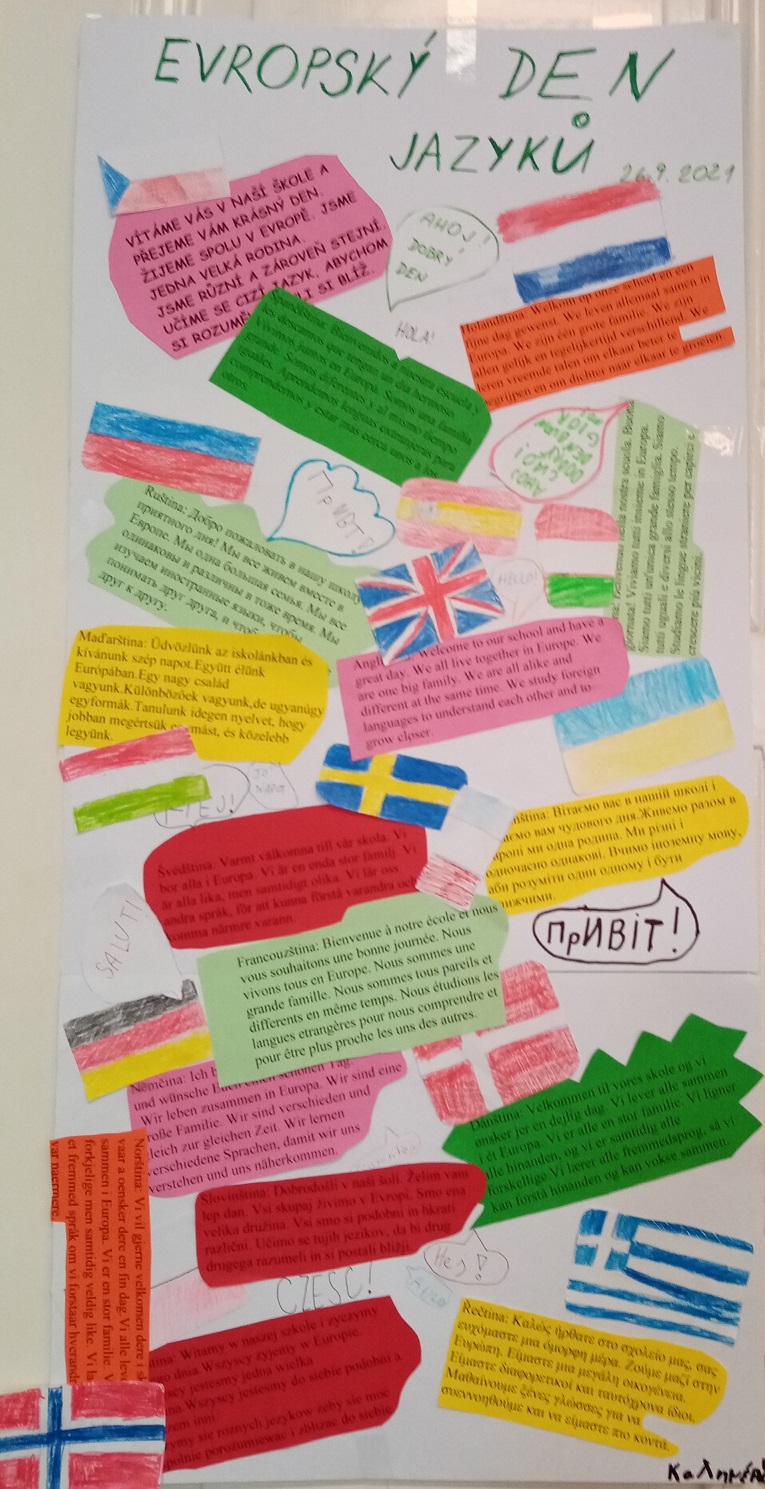 EVROPSKÝ DEN
JAZYKŮ
26.9.2021
VÍTÁME VÁS V NAŠÍ ŠKOLE A
PŘEJEME VÁM KRÁSNÝ DEN.
ŽIJEME SPOLU V EVROPĚ. JSME
JEDNA VELKÁ RODINA.
JSME RŮZNÍ A ZÁROVEŇ STEJNÍ.
UČÍME SE CIZÍ JAZYK, ABYCHOM
SI BLÍŽ.
AHOJ!
DOBRÝ
DEN
HOLA!
Holandština: Welkom op onze school en een
fijne dag gewenst. We leven allemaal samen in
Europa. We zijn één grote familie. We zijn
allen gelijk en tegelijkertijd verschillend. We
leren vreemde talen om elkaar beter te
begrijpen en om dichter naar elkaar te groeien.
Španělština: Bienvenidos a nuestra escuela y
les deseamos que tengan un día hermoso.
Vivimos juntos en Europa. Somos una familia
grande. Somos diferentes y al mismo tiempo
iguales. Aprendemos lenguas extranjeras para
comprendernos y estar más cerca unos a los
otros.
CIAO!
nella nostra scuola. Buona
giornata! Viviamo tutti insieme in Europa.
Siamo tutti un'unica grande famiglia. Siamo
tutti uguali e diversi allo stesso tempo.
Studiamo le lingue straniere per capirci e
crescere più vicini.
ПРИВТ!
Ruština: Добро пожаловать в нашу школу
приятного дня! Мы все живем вместе в
Европе. Мы одна большая семья. Мы все
одинаковы и различны в тоже время. Мы
изучаем иностранные языки, чтобы
понимать друг друга, и
друг к другу.
HELLO!
Maďarština: Üdvözlünk az iskolánkban és
kívánunk szép napot.Együtt élünk
Európában.Egy nagy család
vagyunk.Különbözőek vagyunk,de ugyanúgy
egyformák.Tanulunk idegen nyelvet, hogy
jobban megértsük mást, és közelebb
legyünk.
Welcome to our school and have a
great day. We all live together in Europe. We
are one big family. We are all alike and
different at the same time. We study foreign
languages to understand each other and to
grow closer.
HEJ!
Švédština: Varmt välkomna till vår skola. Vi
bor alla i Europa. Vi är en enda stor familj. Vi
är alla lika, men samtidigt olika. Vi lär oss
andra språk, för att kunna förstå varandra och
komma närmre varann.
Вітаємо вас в нашій школі і
вам чудового дня.Живемо разом в
ми одна родина. Ми різні і
одночасно однакові. Вчимо іноземну мову,
аби розуміти один одному і бути
ближчими.
ПРИВІТ!
SALUT!
Francouzština: Bienvenue à notre école et nous
vous souhaitons une bonne journée. Nous
vivons tous en Europe. Nous sommes une
grande famille. Nous sommes tous pareils et
differents en même temps. Nous étudions les
langues etrangères pour nous comprendre et
pour être plus proche les uns des autres.
Němčina: Ich
und wünsche Euch einen schönen Tag.
Wir leben zusammen in Europa. Wir sind eine
große Familie. Wir sind verschieden und
gleich zur gleichen Zeit. Wir lernen
verschiedene Sprachen, damit wir uns
verstehen und uns näherkommen.
Dánština: Velkommen til vores skole og vi
ønsker jer en dejlig dag. Vi lever alle sammen
i ét Europa. Vi er alle en stor familie. Vi ligner
alle hinanden, og vi er samtidig alle
forskellige. Vi lærer alle fremmedsprog, så vi
kan forstå hinanden og kan vokse sammen.
Norština: Vi vil gjerne velkomen dere i
vaar a oensker dere en fin dag.Vi alle
sammen i Europa. Vi er en stor familie.
forkjelige men samtidig veldig like. Vi
et fremmed språk om vi forstaar hverandre
var naermere.
Slovinština: Dobrodošli v naši šoli. Želim vam
lep dan. Vsi skupaj živimo v Evropi. Smo ena
velika družina. Vsi smo si podobni in hkrati
različni. Učimo se tujih jezikov, da bi drug
drugega razumeli in si postali bližji.
Hej!
CZESC!
Witamy w naszej szkole i zyczymy
dnia.Wszyscy zyjemy w Europie.
jestesmy jedna wielka
Wszyscy jestesmy do siebie podobni a
inni
sie roznych jezykow zeby sie moc
porozumiewac i zblizac do siebie.
Řečtina: Καλώς ήρθατε στο σχολείο μας, σας
ευχόμαστε μια όμορφη μέρα. Ζούμε μαζί στην
Ευρώπη. Είμαστε μια μεγάλη οικογένεια.
Είμαστε διαφορετικοί και ταυτόχρονα ίδιοι.
Μαθαίνουμε ξένες γλώσσες για να
συεννοηθούμε και να είμαστε πιο κοντά.